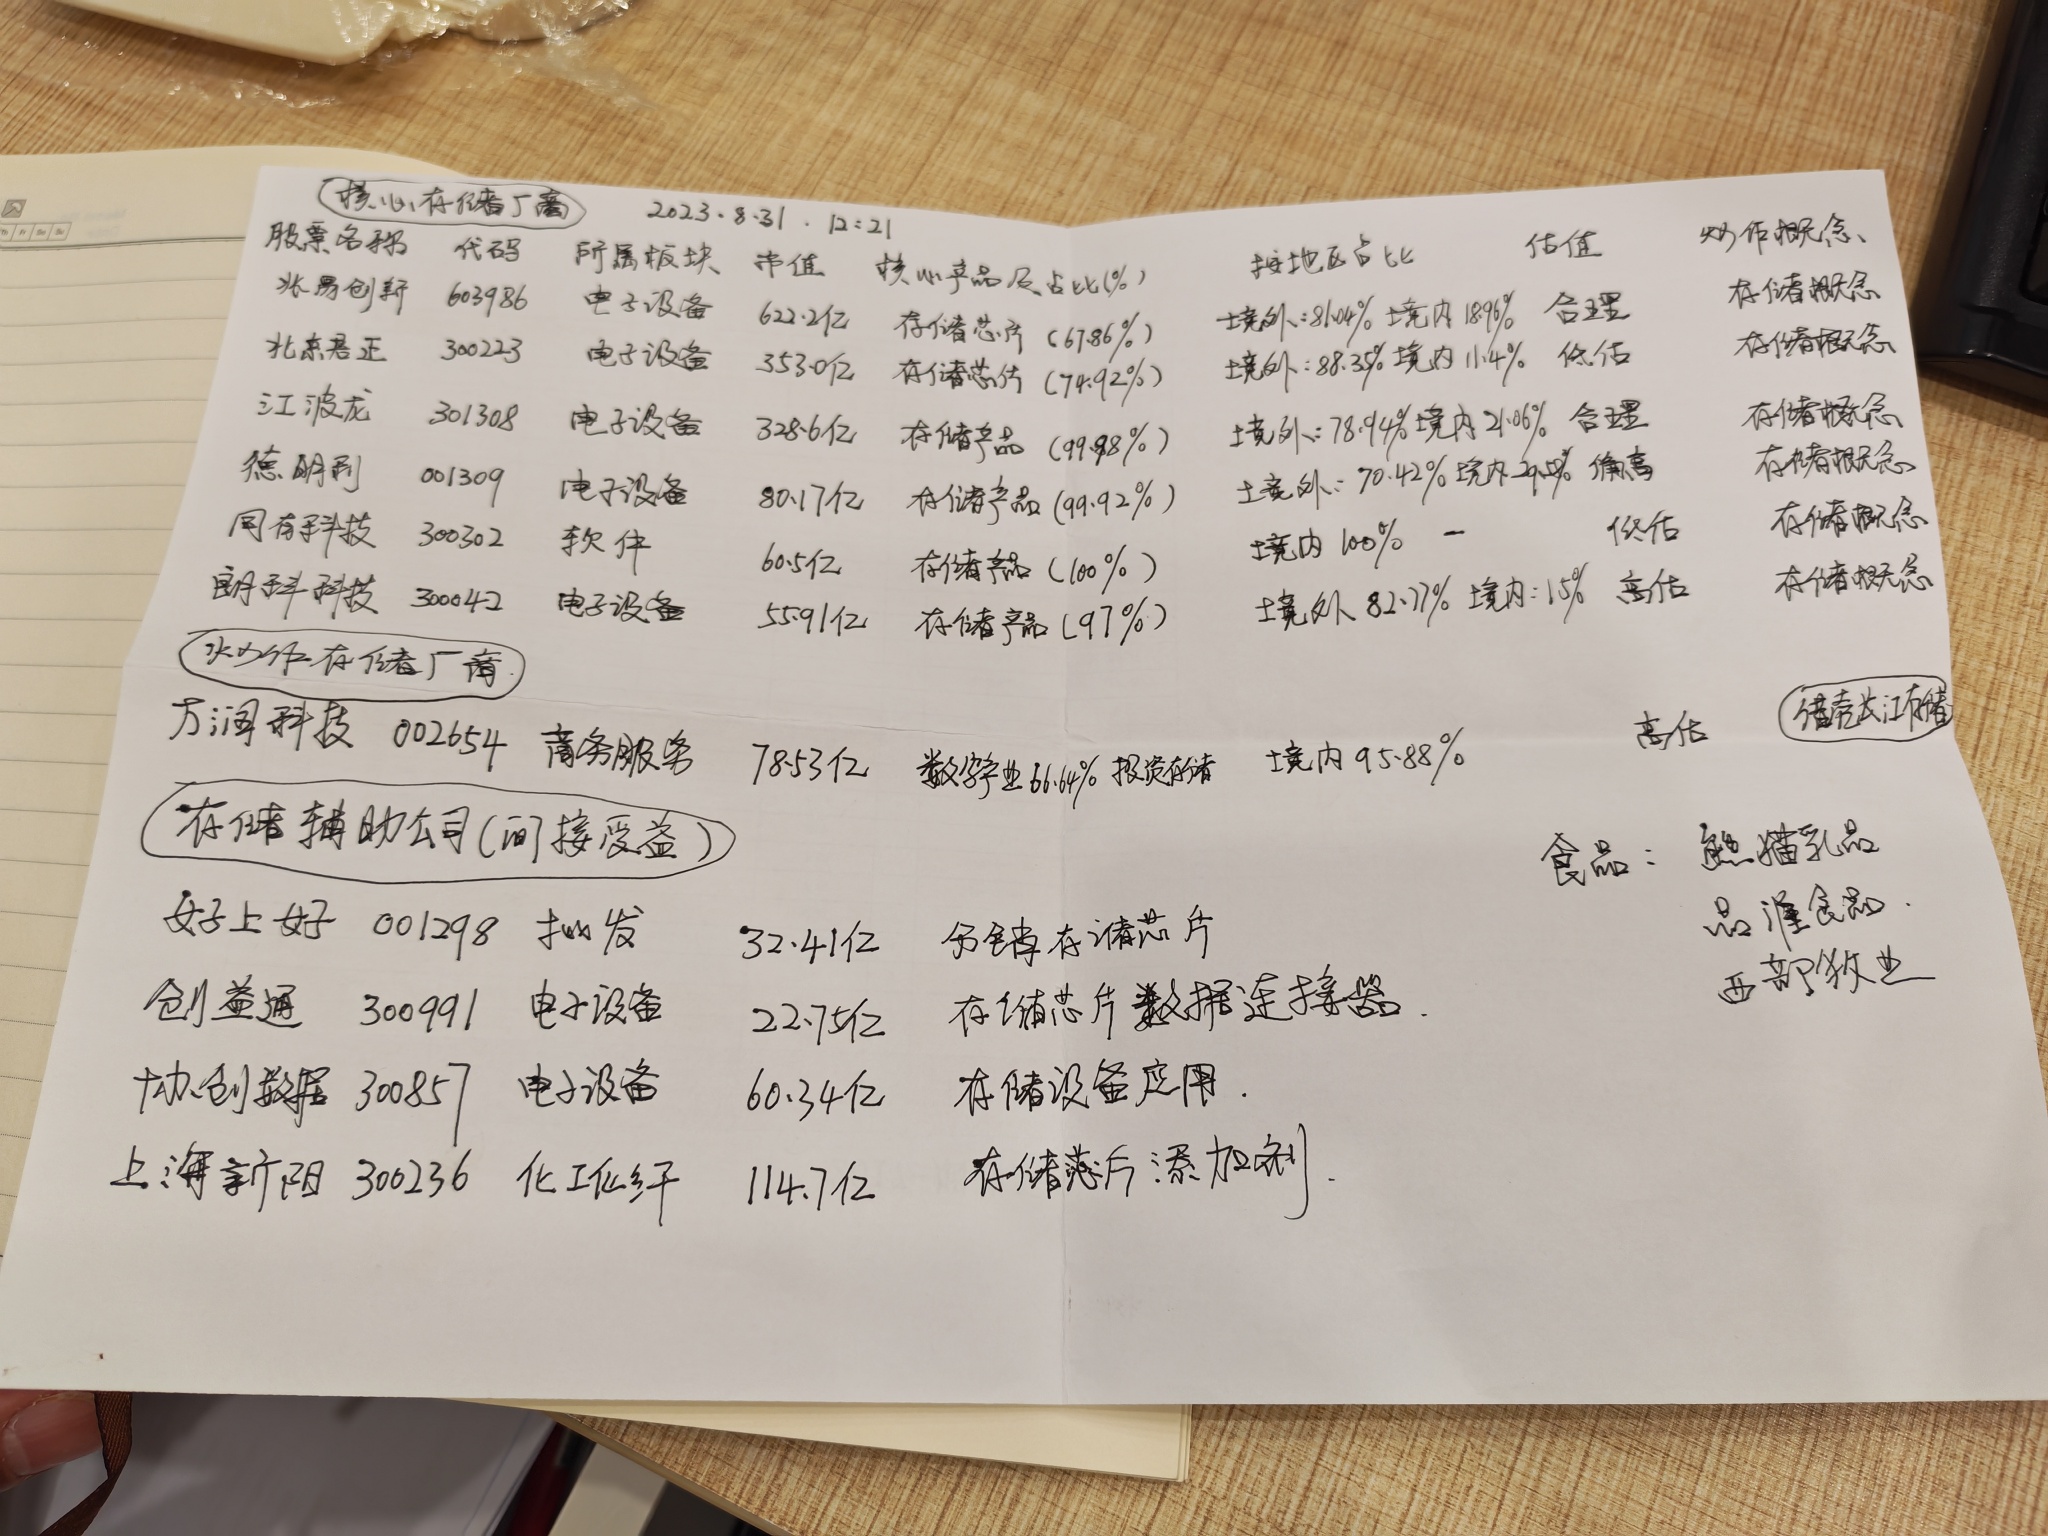 核心存储厂商 2023.8.31. 12:21
股票名称 代码 所属板块 市值 核心产品及占比(%) 按地区占比 估值 炒作概念
兆易创新 603986 电子设备 622.2亿 存储芯片 (67.86%) 境外:81.04% 境内18.96% 合理 存储概念
北京君正 300223 电子设备 353.0亿 存储芯片 (74.92%) 境外:88.35% 境内11.4% 低估 存储概念
江波龙 301308 电子设备 328.6亿 存储产品 (99.98%) 境外:78.94% 境内21.06% 合理 存储概念
德明利 001309 电子设备 80.17亿 存储产品 (99.92%) 境外:70.42% 境内 偏高 存储概念
同有科技 300302 软件 60.5亿 存储产品 (100%) 境内100% - 低估 存储概念
朗科科技 300042 电子设备 55.91亿 存储产品 (97%) 境外82.77% 境内:15% 高估 存储概念
炒作存储厂商
万润科技 002654 商务服务 78.53亿 数字产业66.64% 投资存储 境内95.88% 高估 借壳长江存储
存储辅助公司(间接受益)
好上好 001298 批发 32.41亿 分销存储芯片
创益通 300991 电子设备 22.75亿 存储芯片数据连接器.
协创数据 300857 电子设备 60.34亿 存储设备应用.
上海新阳 300236 化工化纤 114.7亿 存储芯片添加剂.
食品: 熊猫乳品
品渥食品.
西部牧业